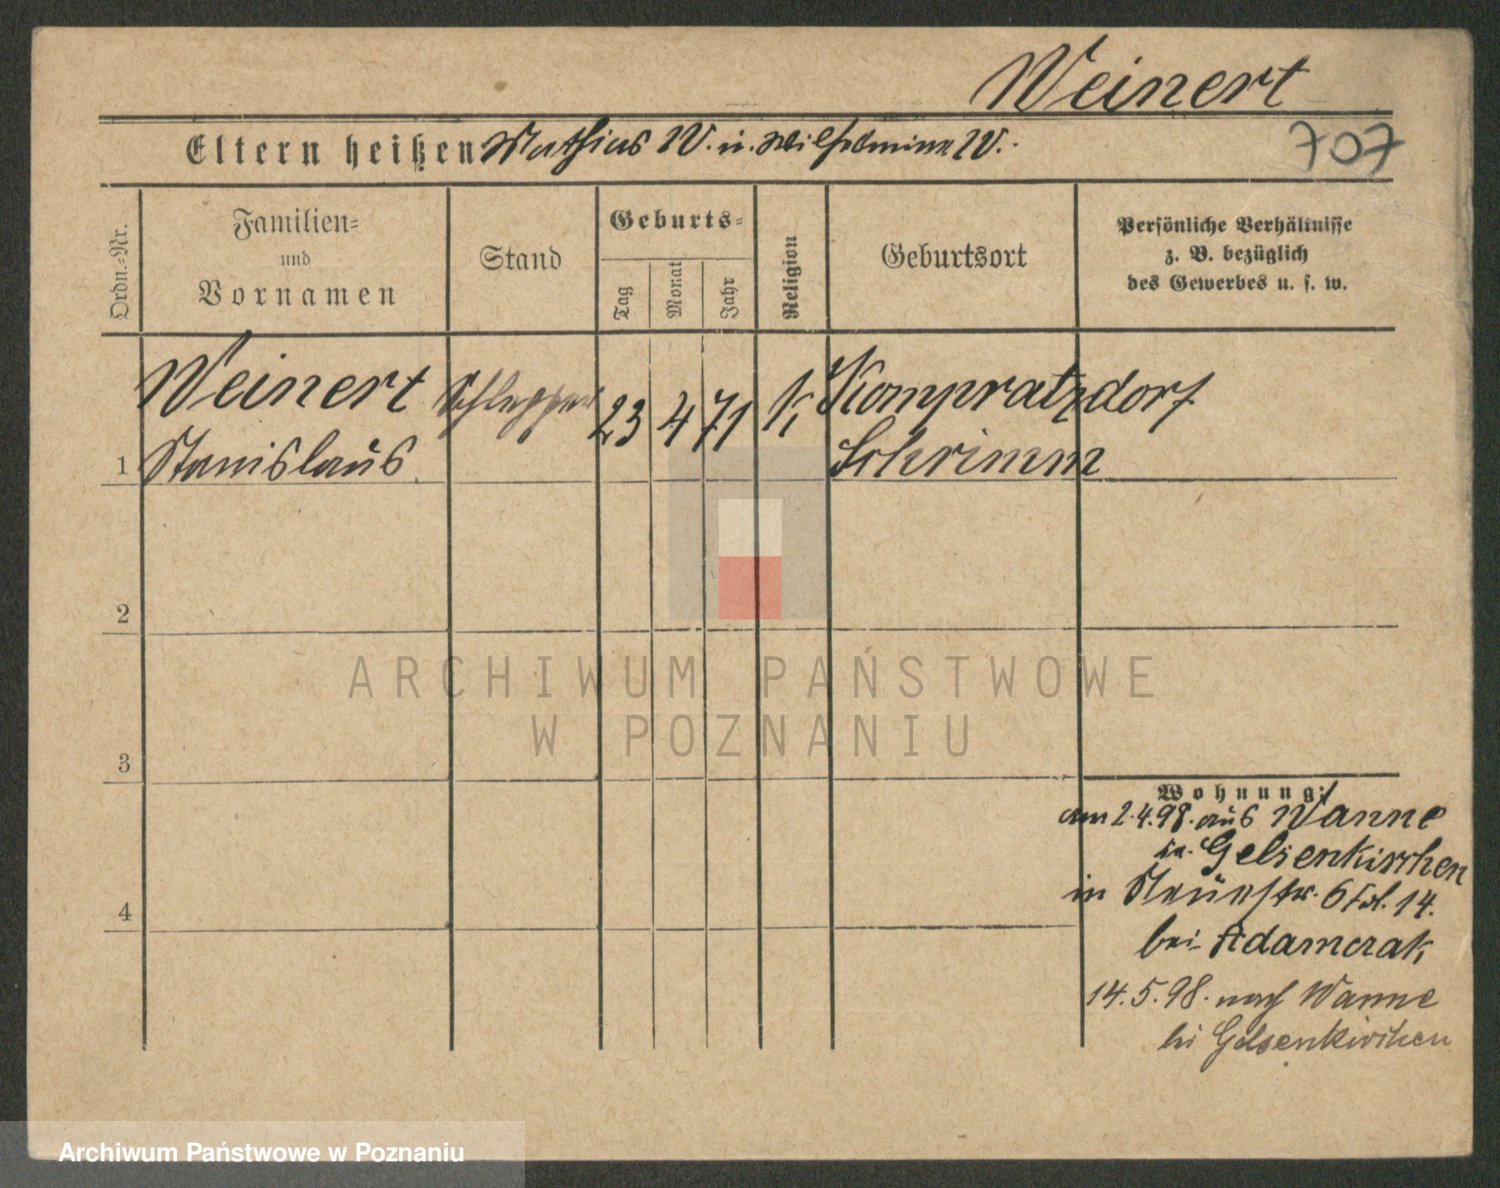 Weinert
Eltern heißen Mathias W. u. Wilhelmine W.
707
Ordn.-Nr.
Familien-
und
Vornamen
Stand
Geburts-
Tag
Monat
Jahr
Religion
Geburtsort
Persönliche Verhältnisse
z. B. bezüglich
des Gewerbes u. s. w.
Weinert Schlepper 23 4 71 K. Kompratzdorf
1 Stanislaus Schrimm
2
ARCHIWUM PAŃSTWOWE
W POZNANIU
3
Wohnung:
am 2.4.98. aus Wanne
Gelsenkirchen
in Neuestr. 14.
bei Adamczak
4
14.5.98. nach Wanne
bei Gelsenkirchen
Archiwum Państwowe w Poznaniu